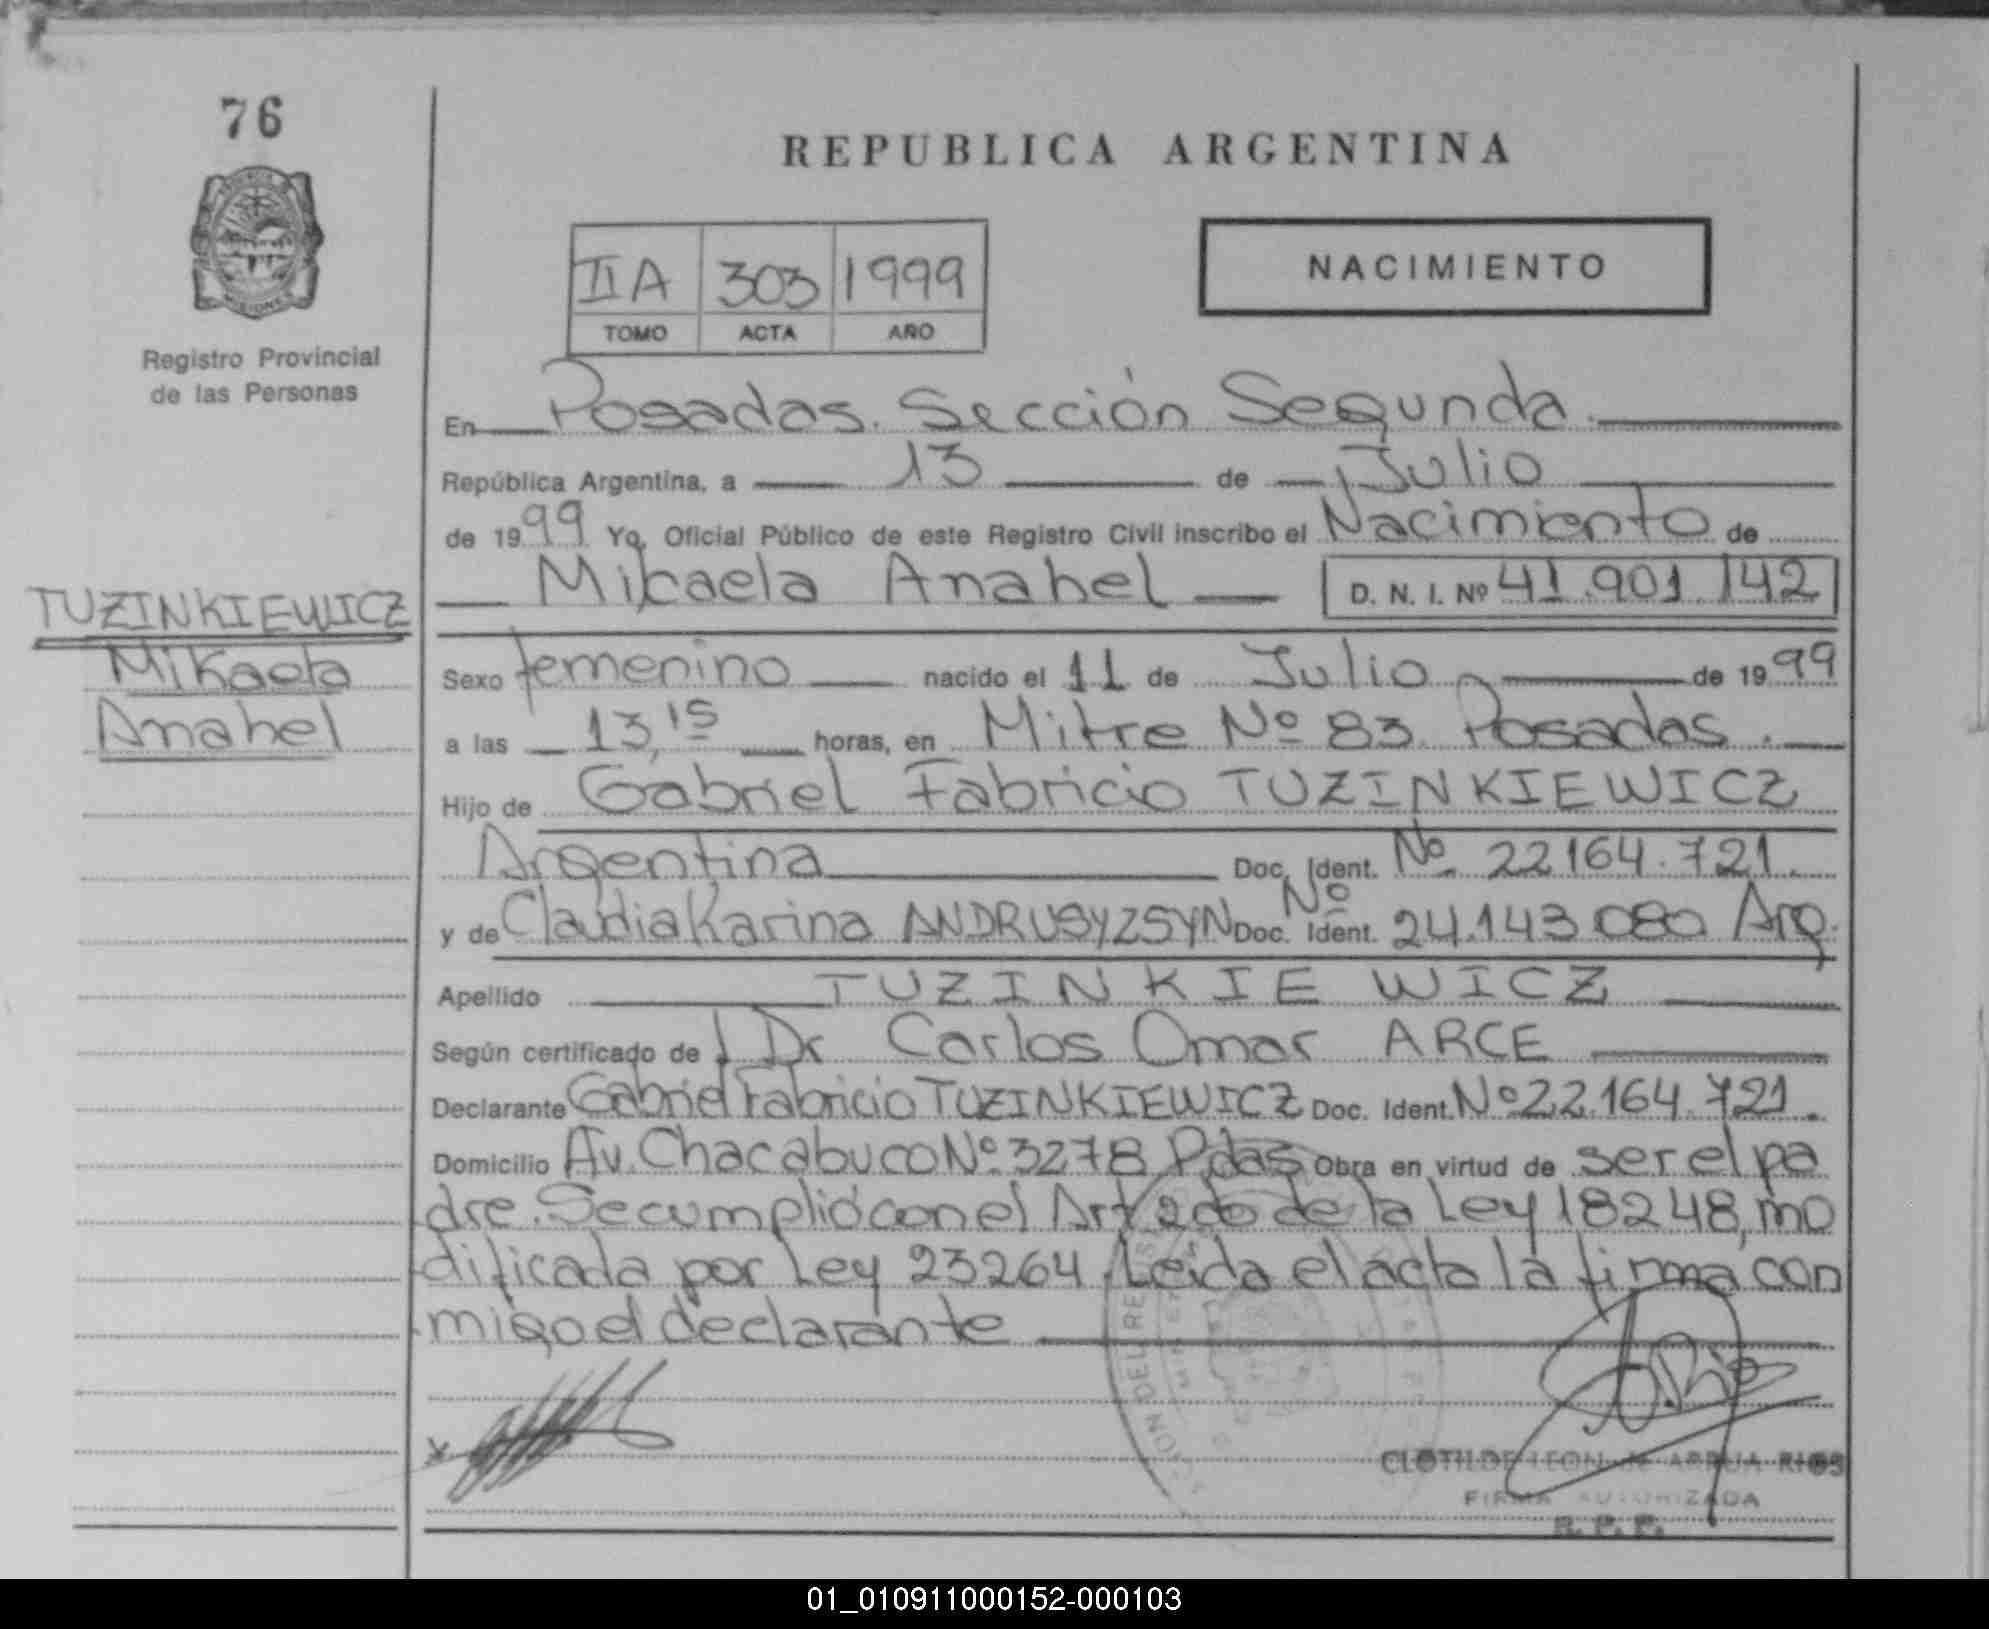 76
Registro Provincial
de las Personas
TUZINKIEWICZ
Mikaela
Anahel
REPUBLICA ARGENTINA
IIA 303 1999
TOMO ACTA AÑO
NACIMIENTO
En Posadas. Sección Segunda.
República Argentina, a 13 de Julio
de 1999 Yo, Oficial Público de este Registro Civil inscribo el Nacimiento de
Mikaela Anahel D. N. I. Nº 41.901.142
Sexo femenino nacido el 11 de Julio de 1999
a las 13,15 horas, en Mitre Nº 83. Posadas.
Hijo de Gabriel Fabricio TUZINKIEWICZ
Argentina Doc. Ident. Nº 22.164.721.
y de Claudia Karina ANDRUSYZSYN Doc. Ident. Nº 24.143.080 Arg.
Apellido TUZINKIEWICZ
Según certificado de Dr Carlos Omar ARCE
Declarante Gabriel Fabricio TUZINKIEWICZ Doc. Ident. Nº 22.164.721.
Domicilio Av. Chacabuco Nº 3278 Pdas Obra en virtud de ser el pa
dre. Se cumplió con el Art 2do de la Ley 18248, mo
dificada por Ley 23264. Leida el acta la firma con
migo el declarante
CLOTILDE LEON de ARRUA RIOS
FIRMA AUTORIZADA
R. P. P.
01_010911000152-000103